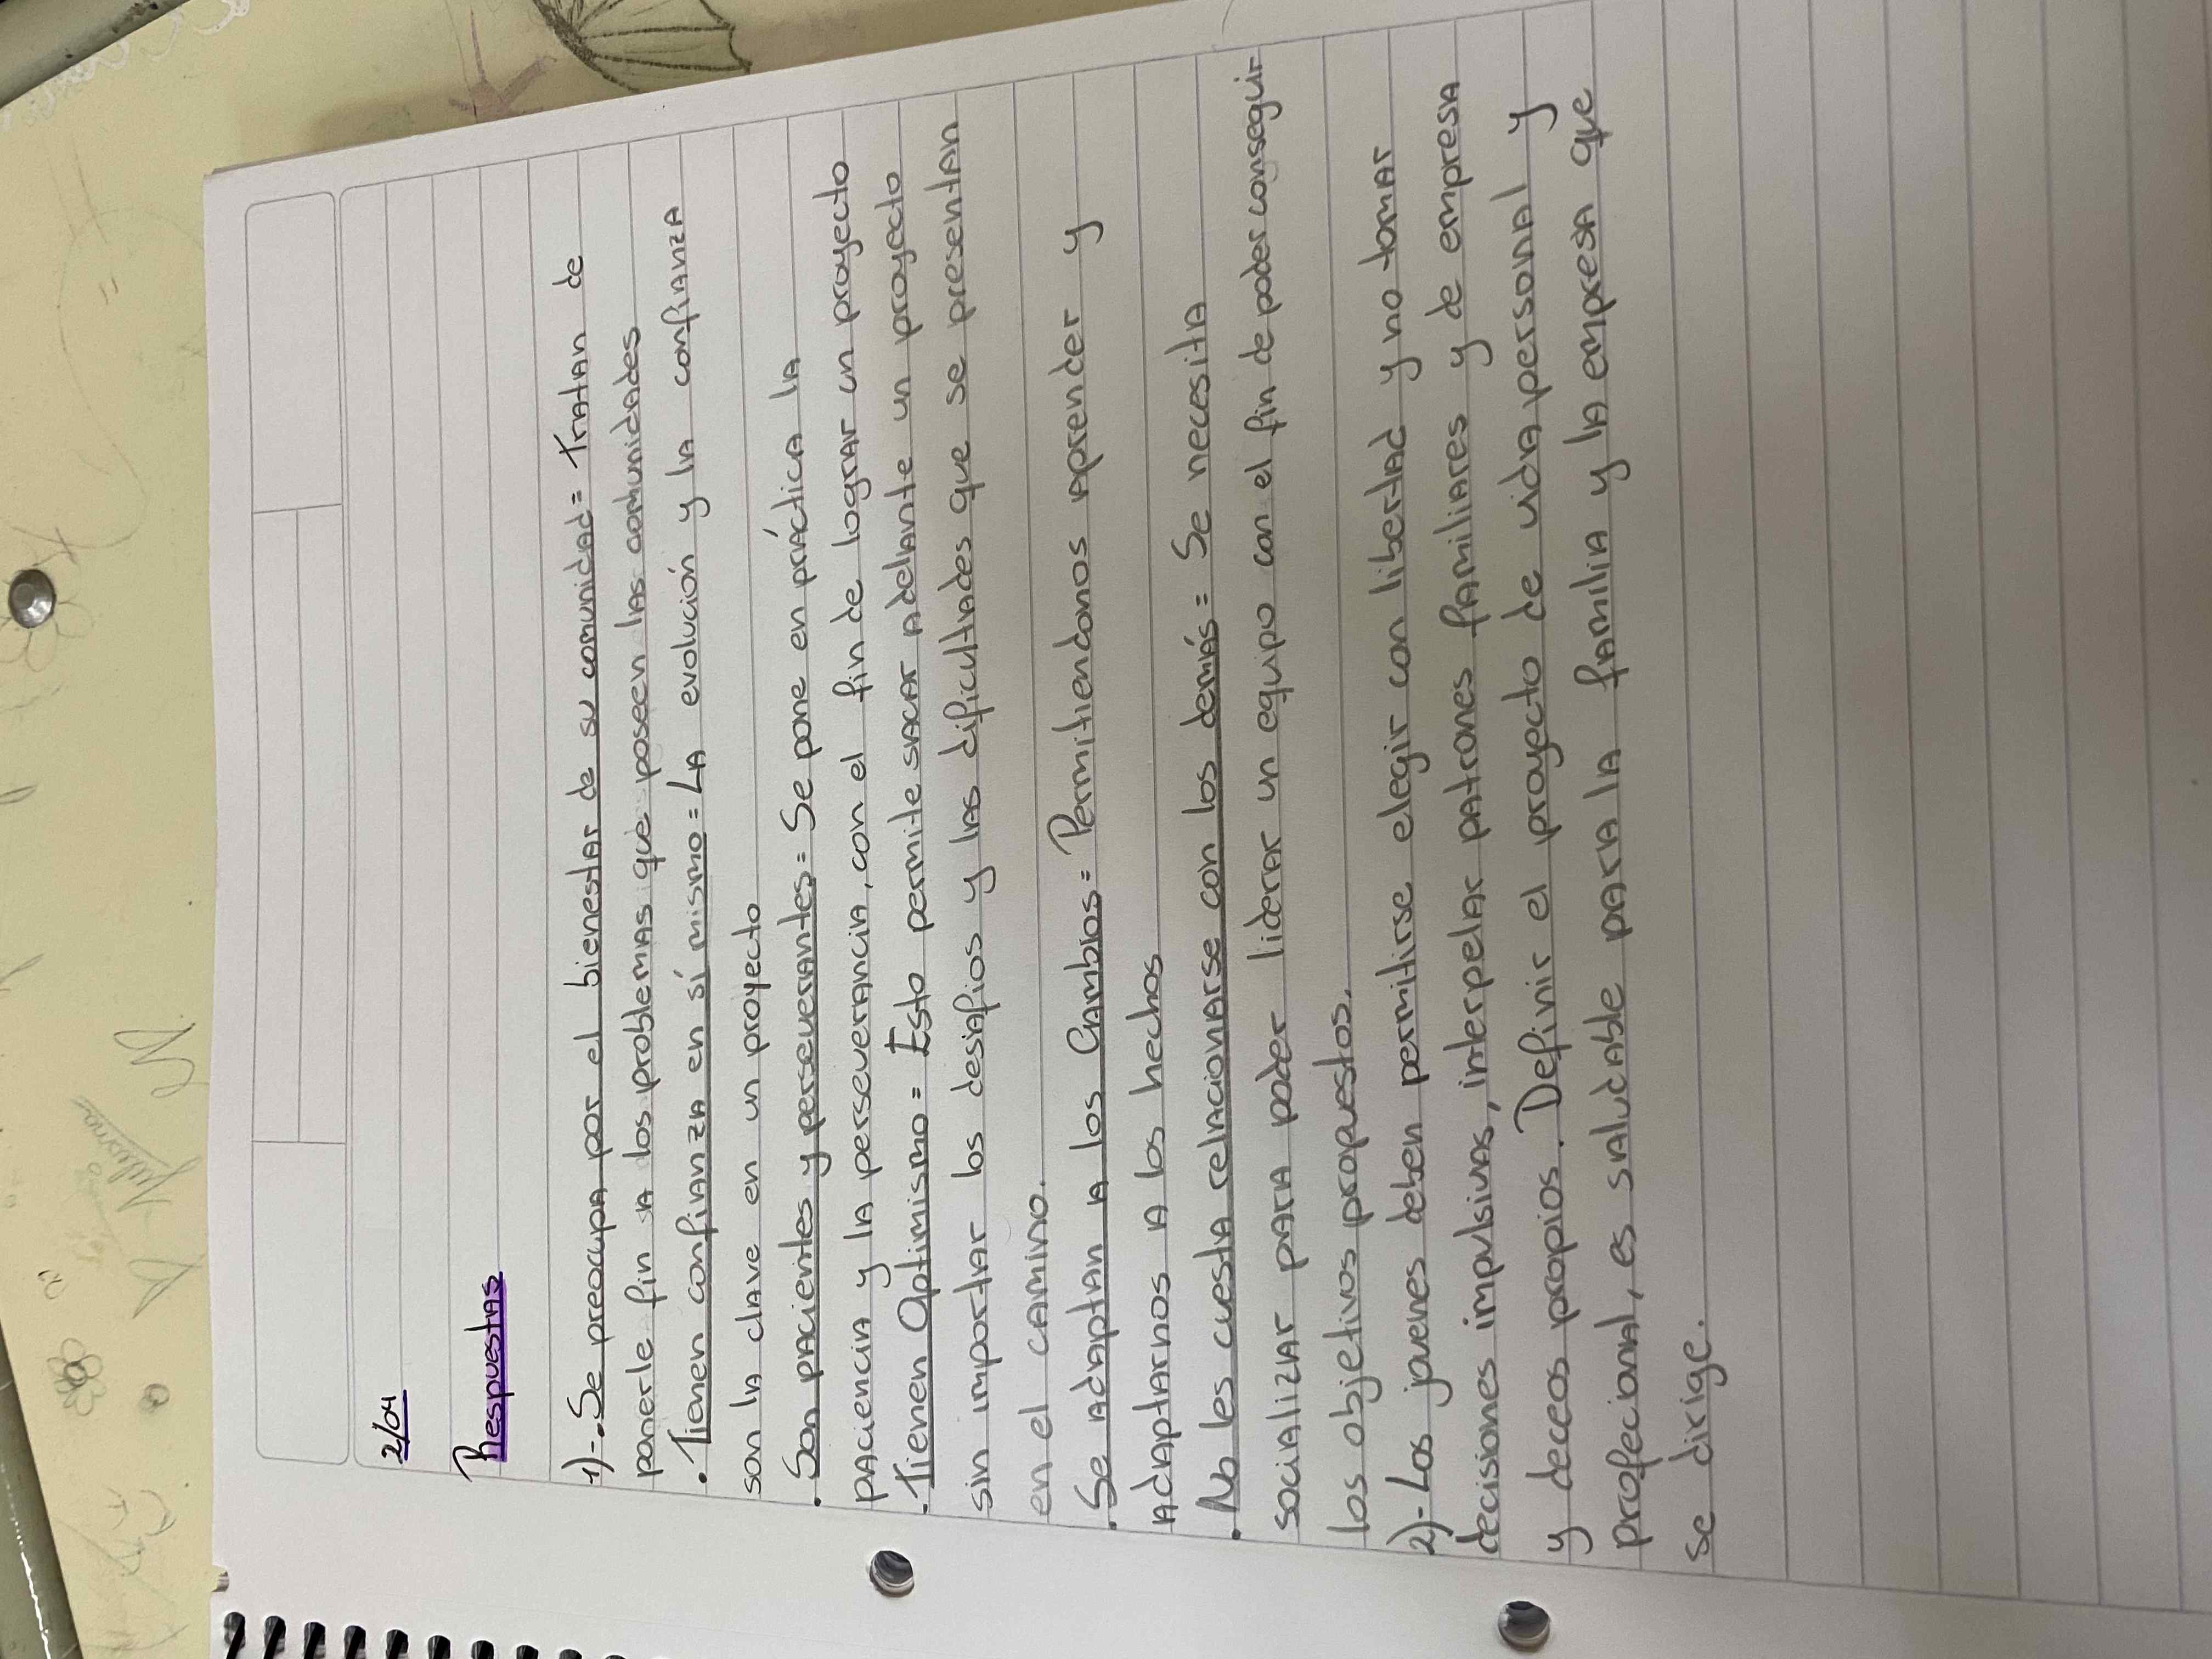 2/04
Respuestas
1)-. Se preocupa por el bienestar de su comunidad= Tratan de
ponerle fin a los problemas que poseen las comunidades
. Tienen confianza en sí mismo= La evolución y la confianza
son la clave en un proyecto
. Son pacientes y perseverantes= Se pone en práctica la
paciencia y la perseverancia, con el fin de lograr un proyecto
. Tienen Optimismo= Esto permite sacar adelante un proyecto
sin importar los desafios y las dificultades que se presentan
en el camino.
. Se adaptan a los Cambios= Permitiendonos aprender y
adaptarnos a los hechos
. No les cuesta relacionarse con los demás= Se necesita
socializar para poder liderar un equipo con el fin de poder conseguir
los objetivos propuestos.
2)- Los jovenes deben permitirse elegir con libertad y no tomar
decisiones impulsivas, interpelar patrones familiares y de empresa
y deceos propios. Definir el proyecto de vida personal y
profecional, es saludable para la familia y la empresa que
se dirige.
Juliana